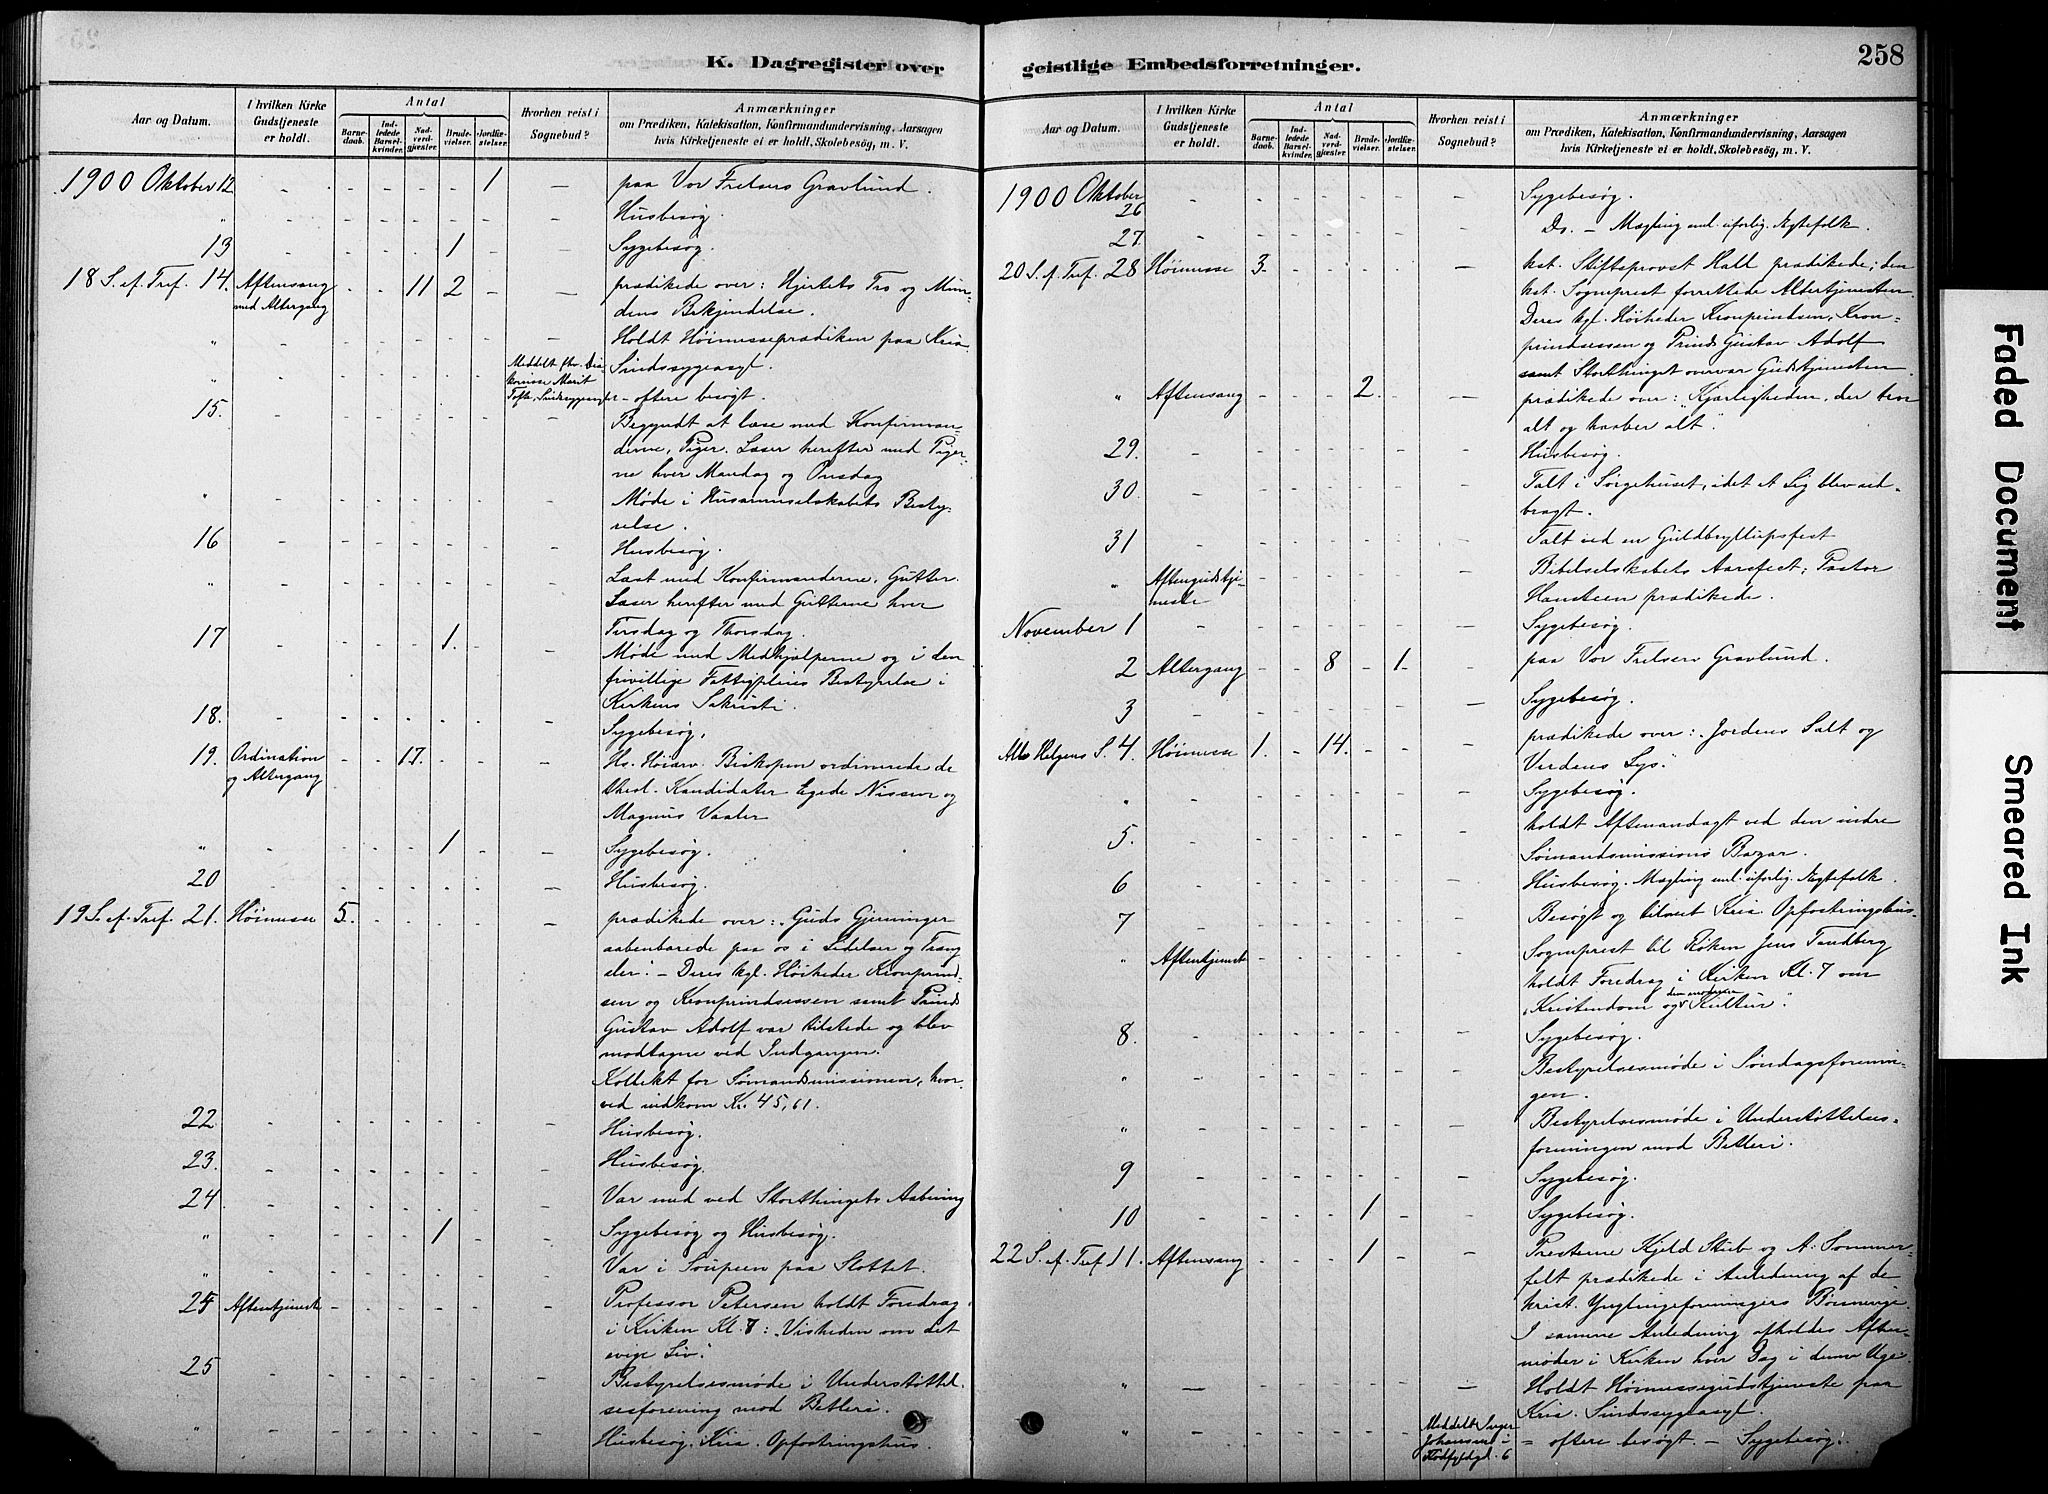 K. Dagregister over
Aar og Datum.
I hvilken Kirke Gudstjeneste er holdt.
Antal
Barnedaab.
Indledede Barselkvinder.
Nadverdgjæster.
Brudevielser.
Jordfæstelser.
Hvorhen reist i Sognebud?
Anmærkninger
om Prædiken, Katekisation, Konfirmandundervisning, Aarsagen
hvis Kirketjeneste ei er holdt, Skolebesøg, m. V.
1900 Oktober 12 - - - - - 1 - paa Vor Frelsers Gravlund.
" - - - - - - - Husbesøg.
13 - - - - 1 - - Sygebesøg.
18 S. ef. Tref. 14. Aftensang - - 11 2 - - prædikede over: Hjertets Tro og Mun-
med Altergang dens Bekjendelse.
" Holdt Høimesseprædiken paa Kria
" Meddelt Sindssygeasyl.
- oftere besøgt.
15. Begyndt at læse med Konfirman-
derne, Piger. Læser herefter med Piger-
ne hver Mandag og Onsdag
" Møde i Husarmeselskabets Besty-
relse.
16 Husbesøg.
" Læst med Konfirmanderne, Gutter.
Læser herefter med Gutterne hver
Tirsdag og Thorsdag.
17 1. Møde med Medhjælperne og i den
frivillige Fattigpleies Bestyrelse i
Kirkens Sakristi.
18. Sygebesøg.
19. Ordination - - 17. Hs. Høiærv. Biskopen ordinerede de
og Altergang theol. Kandidater Egede Nissen og
Magnus Vaaler
" 1 Sygebesøg.
20 Husbesøg.
19 S. ef. Tref. 21. Høimesse 5. prædikede over: "Guds Gjerninger
aabenbarede paa os i Lidelser og Træng
sler". - Deres kgl. Høiheder Kronprind-
sen og Kronprindsessen samt Prinds
Gustav Adolf var tilstede og blev
modtagne ved Indgangen.
Kollekt for Sømandsmissionen, hvor-
ved indkom Kr. 45,61.
22 Husbesøg.
23. Husbesøg.
24 Var med ved Storthingets Aabning
" 1 Sygebesøg og Husbesøg.
" Var i Soupeen paa Slottet.
25 Aftentjenst Professor Petersen holdt Foredrag
i Kirken Kl. 8: "Visheden om det
evige Liv".
25 Bestyrelsesmøde i Understøttel-
sesforening mod Betleri.
" Husbesøg. Kria. Opfostringshus.
geistlige Embedsforretninger.
258
Aar og Datum.
I hvilken Kirke Gudstjeneste er holdt.
Antal
Barnedaab.
Indledede Barselkvinder.
Nadverdgjæster.
Brudevielser.
Jordfæstelser.
Hvorhen reist i Sognebud?
Anmærkninger
om Prædiken, Katekisation, Konfirmandundervisning, Aarsagen
hvis Kirketjeneste ei er holdt, Skolebesøg, m. V.
1900 Oktober 26 Sygebesøg.
27. Do. - Mægling ml. uforlig. Ægtefolk.
20 S. ef. Tref. 28 Høimesse 3. kst. Stiftsprovst Hall prædikede; den
kst. Sogneprest forrettede Altertjenesten.
Deres kgl. Høiheder Kronprindsen, Kron-
prindsessen og Prinds Gustav Adolf
samt Storthinget overvar Gudstjenesten
" Aftensang 2. prædikede over: "Kjærligheden, der tror
alt og haaber alt".
29. Husbesøg.
30. Talt i Sørgehuset, idet et Lig blev ud-
bragt.
31 Talt ved en Guldbryllupsfest
" Aftengudstje- Bibelselskabets Aarsfest; Pastor
neste Hansteen prædikede.
November 1 Sygebesøg.
2 Altergang - - 8 - 1 - paa Vor Frelsers Gravlund.
3 Sygebesøg.
Alle Helgens S. 4. Høimesse 1. - 14. prædikede over: "Jordens Salt og
Verdens Lys."
" Sygebesøg.
5. holdt Aftenandagt ved den indre
Sømandsmissions Bazar.
6 Husbesøg. Mægling ml. uforlig. Ægtefolk.
7 Besøgt og tilseet Kria. Opfostringshus.
" Aftentjenst Sogneprest til Røken Jens Tandberg
holdt Foredrag i Kirken Kl. 7 om
"Kristendom og den moderne Kultur".
8. Sygebesøg.
" Bestyrelsesmøde i Søndagsforenin-
gen.
" Bestyrelsesmøde i Understøttelses-
foreningen mod Betleri.
9 Sygebesøg.
10 1 Sygebesøg.
22 S. ef. Tref 11. Aftensang 1 Presterne Kjeld Stub og A. Sommer-
felt prædikede i Anledning af de
krist. Ynglingeforeningers Bønneuge.
I samme Anledning afholdes Aften-
møder i Kirken hver Dag i denne Uge.
" Holdt Høimessegudstjeneste paa
Kria. Sindssygeasyl.
" Meddelt - oftere besøgt. - Sygebesøg.
Johansen i
Faded Document
Smeared Ink